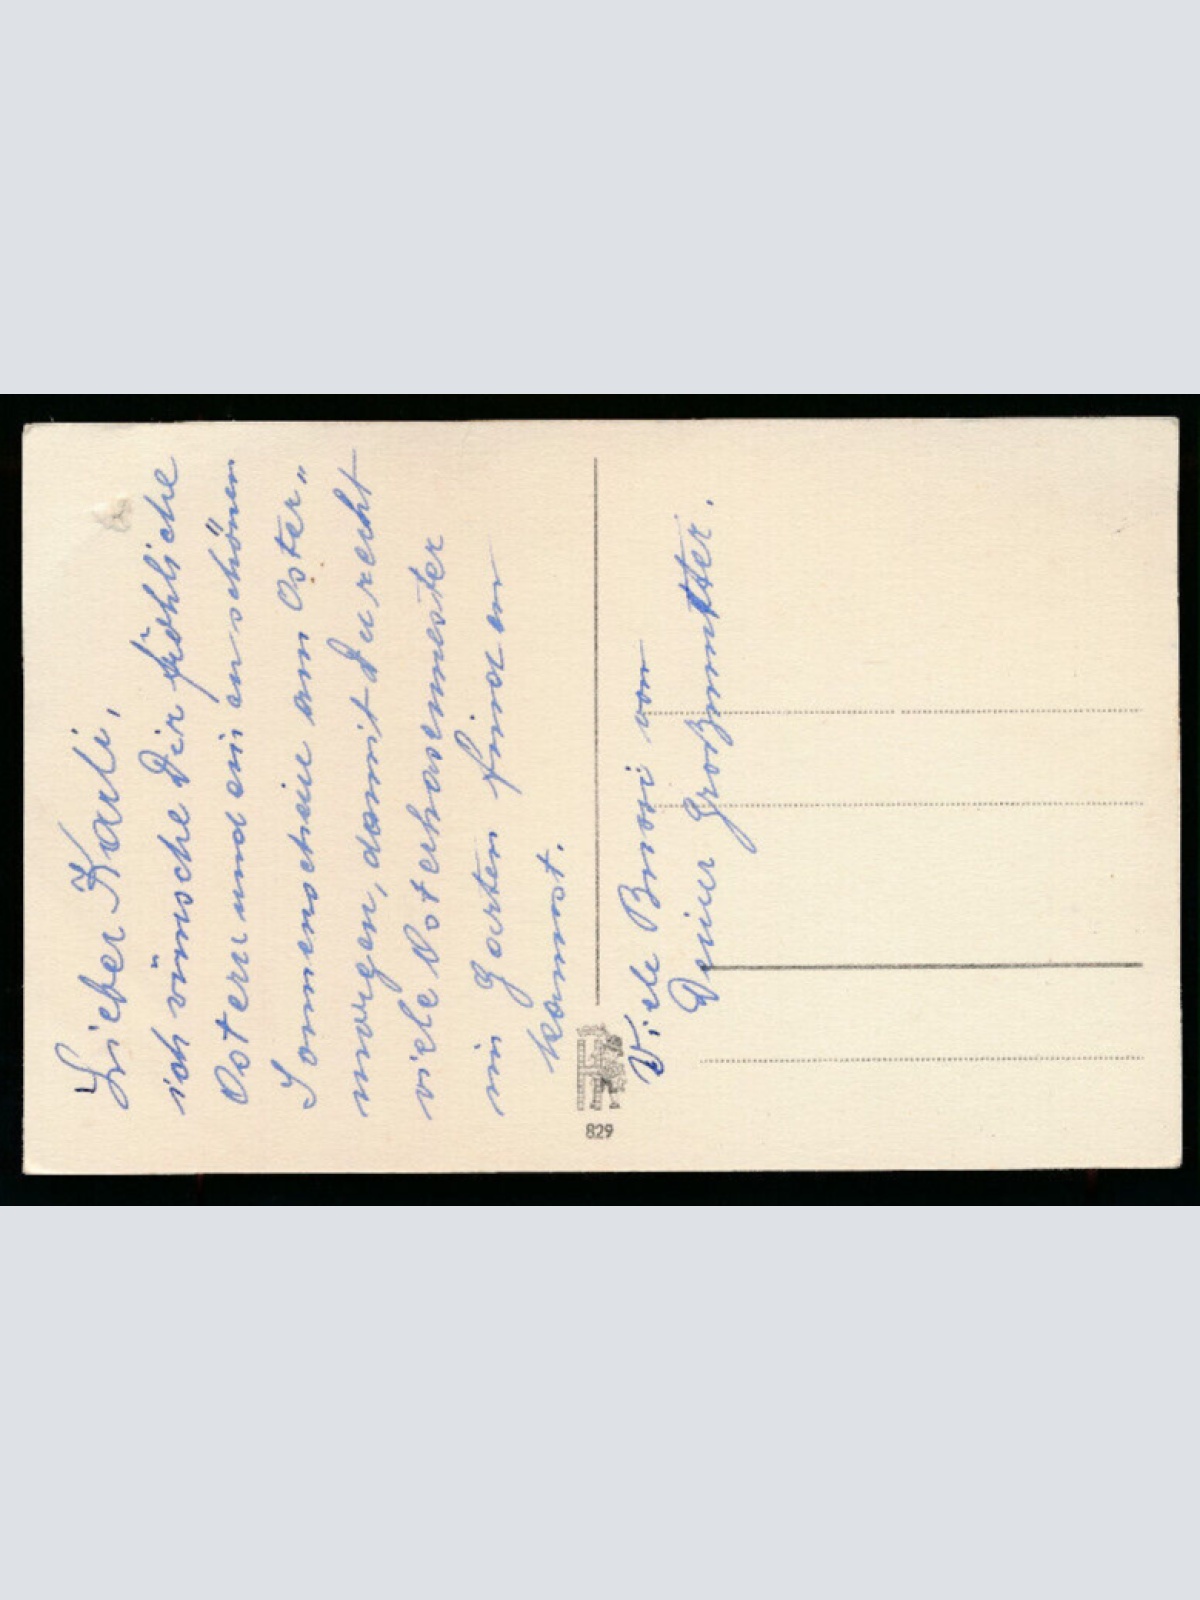 Lieber Karli,
ich wünsche Dir fröhliche
Ostern und einen schönen
Sonnenschein am Oster„
morgen, damit Du recht
viele Osterhasennester
im Garten finden
kannst.
Viele Bussi von
Deiner Großmutter.
829